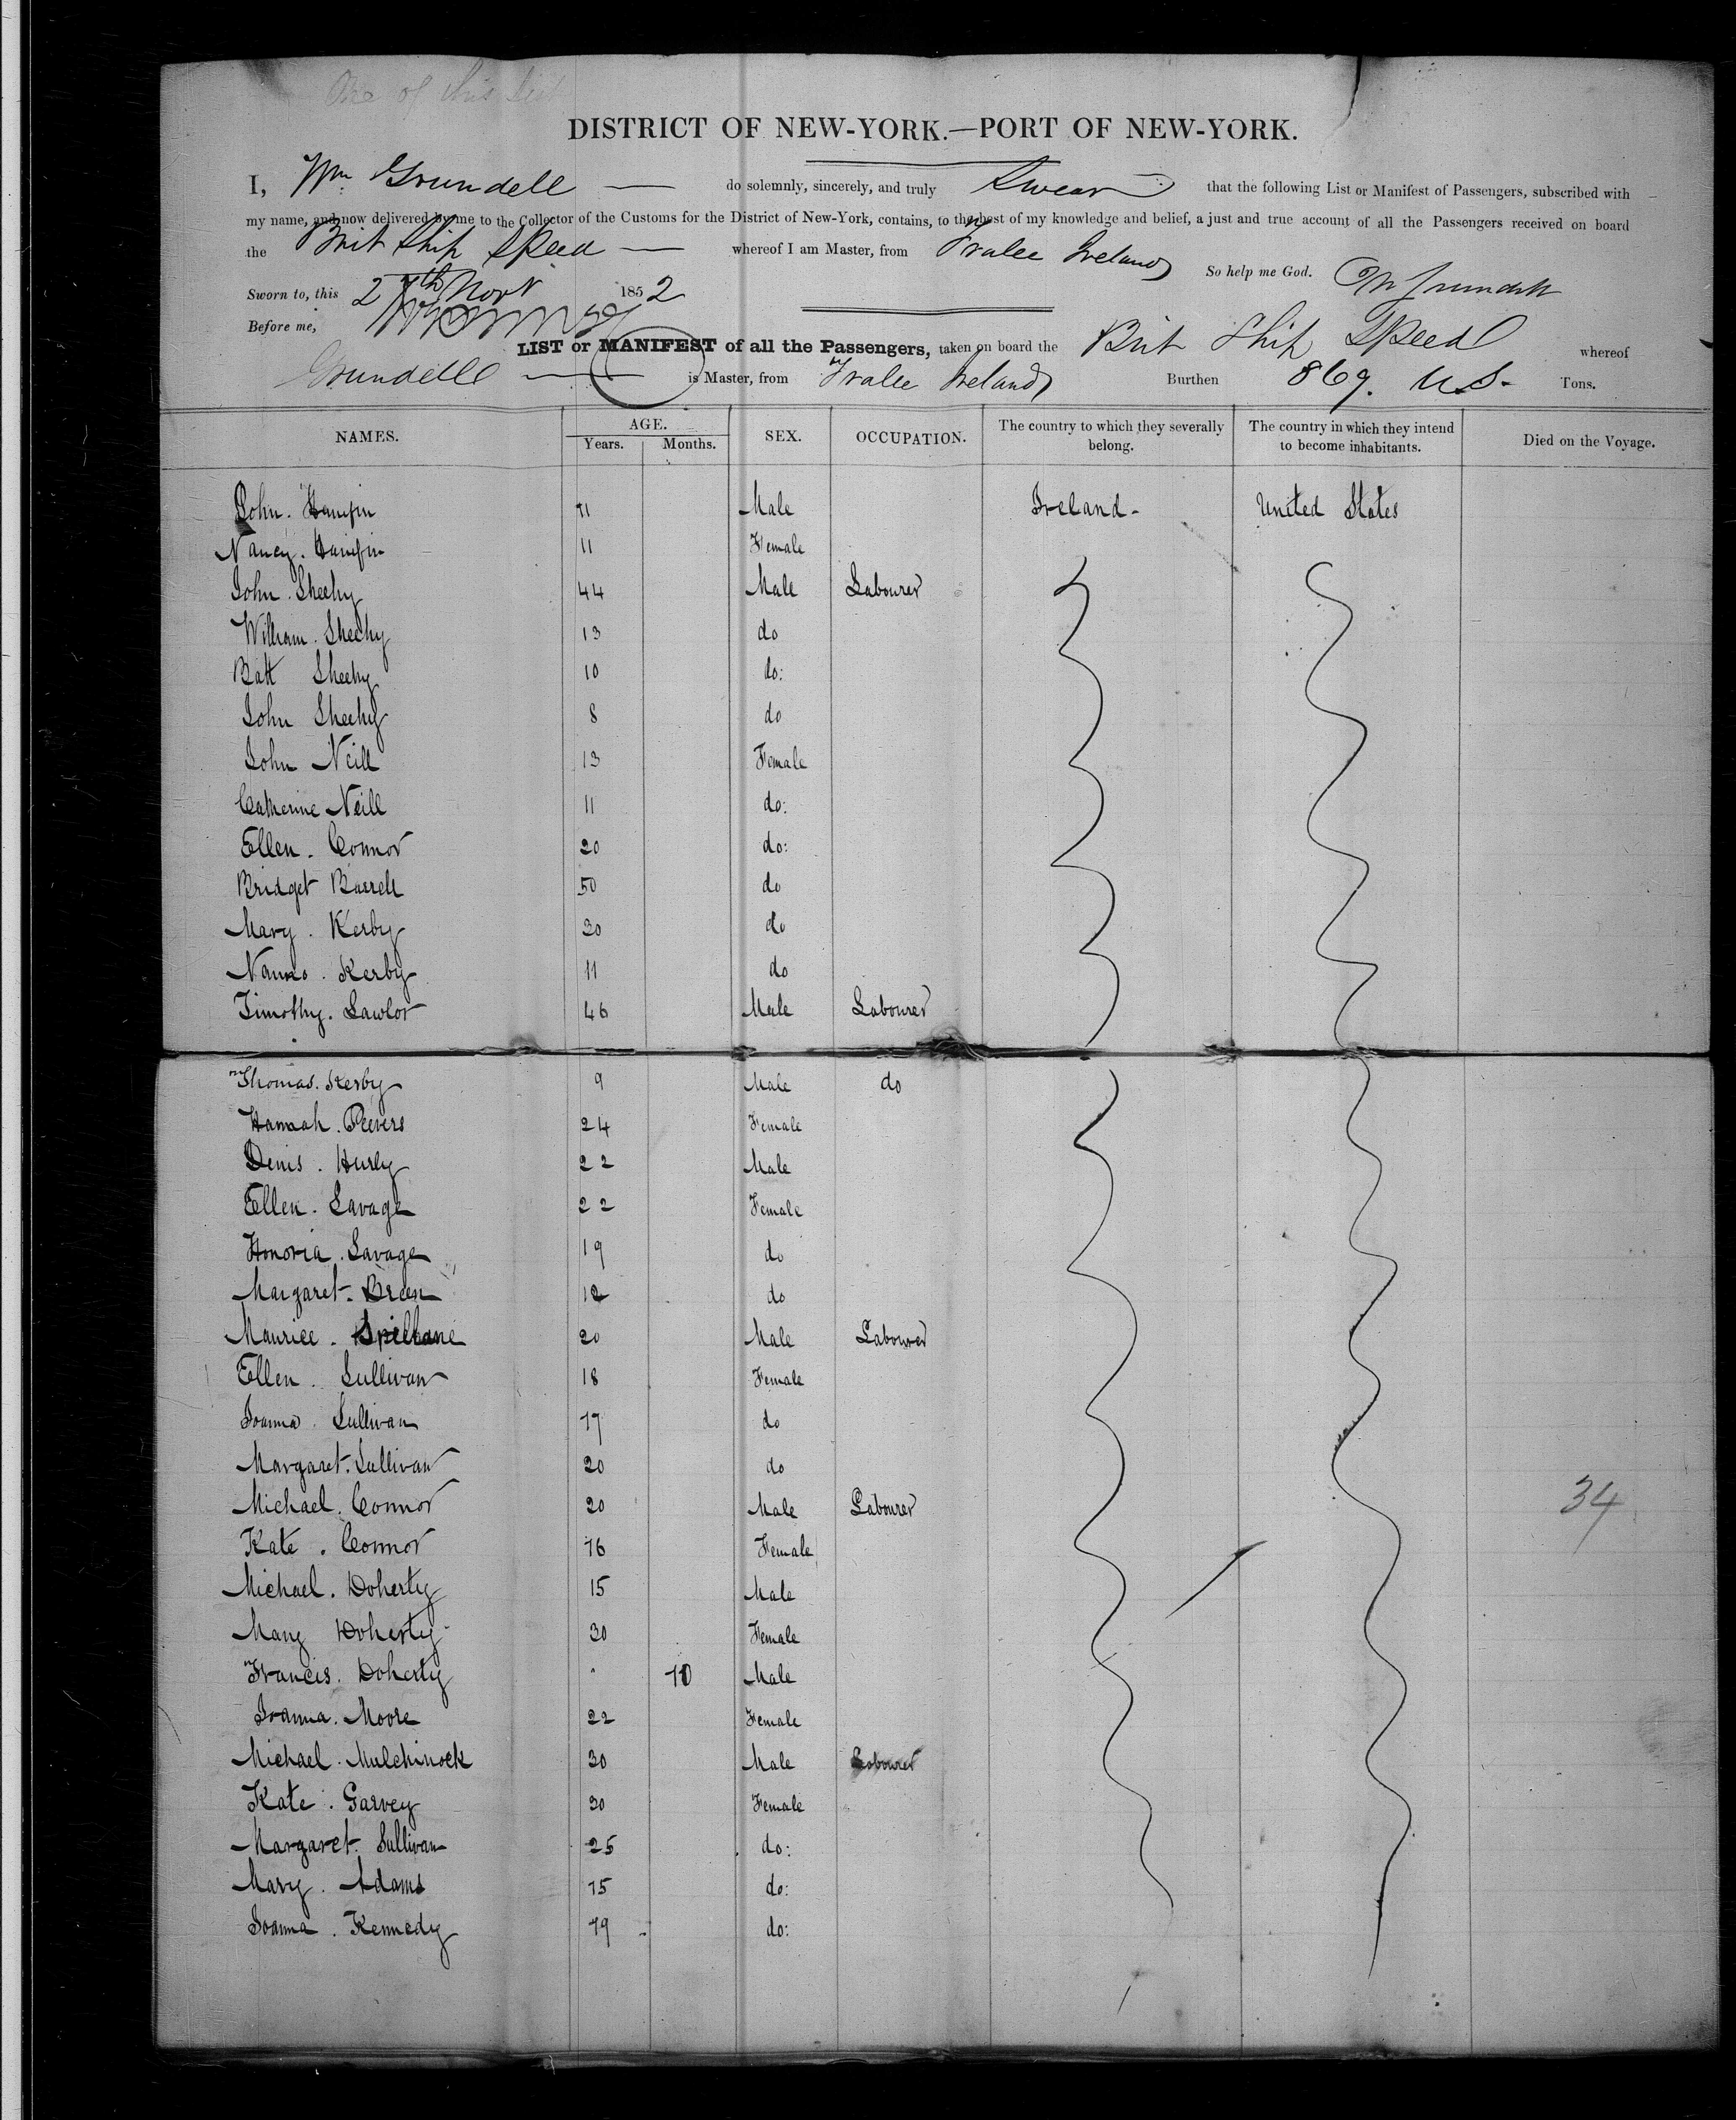 One of this List
DISTRICT OF NEW-YORK.—PORT OF NEW-YORK.
I, Wm Grundell — do solemnly, sincerely, and truly Swear that the following List or Manifest of Passengers, subscribed with
my name, and now delivered by me to the Collector of the Customs for the District of New-York, contains, to the best of my knowledge and belief, a just and true account of all the Passengers received on board
the Brit Ship Speed — whereof I am Master, from Tralee Ireland So help me God. Wm Grundell
Sworn to, this 27th Novr 1852
Before me,
LIST or MANIFEST of all the Passengers, taken on board the Brit Ship Speed whereof
Grundell — is Master, from Tralee Ireland Burthen 869. U.S- Tons.
NAMES. AGE. Years. Months. SEX. OCCUPATION. The country to which they severally belong. The country in which they intend to become inhabitants. Died on the Voyage.
John. Hanifin 11 Male Ireland- United States
Nancy. Hanifin 11 Female
John. Sheehy 44 Male Labourer
William. Sheehy 13 do
Batt Sheehy 10 do:
John Sheehy 8 do
John Neill 13 Female
Catherine Neill 11 do:
Ellen. Connor 20 do:
Bridget Barrell 50 do
Mary. Kerby 30 do
Nanno. Kerby 11 do
Timothy. Lawlor 46 Male Labourer
Thomas. Kerby 9 Male do
Hannah. Peevers 24 Female
Denis. Hurly 22 Male
Ellen. Savage 22 Female
Honoria. Savage 19 do
Margaret. Breen 12 do
Maurice. Spillane 20 Male Labourer
Ellen. Sullivan 18 Female
Joanna. Sullivan 17 do
Margaret. Sullivan 20 do
Michael. Connor 20 Male Labourer
34
Kate. Connor 16 Female
Michael. Doherty 15 Male
Mary Doherty 30 Female
Francis. Doherty 10 Male
Joanna. Moore 22 Female
Michael. Mulchinock 30 Male Labourer
Kate. Garvey 30 Female
Margaret. Sullivan 25 do:
Mary. Adams 15 do:
Joanna. Kennedy 19 do: